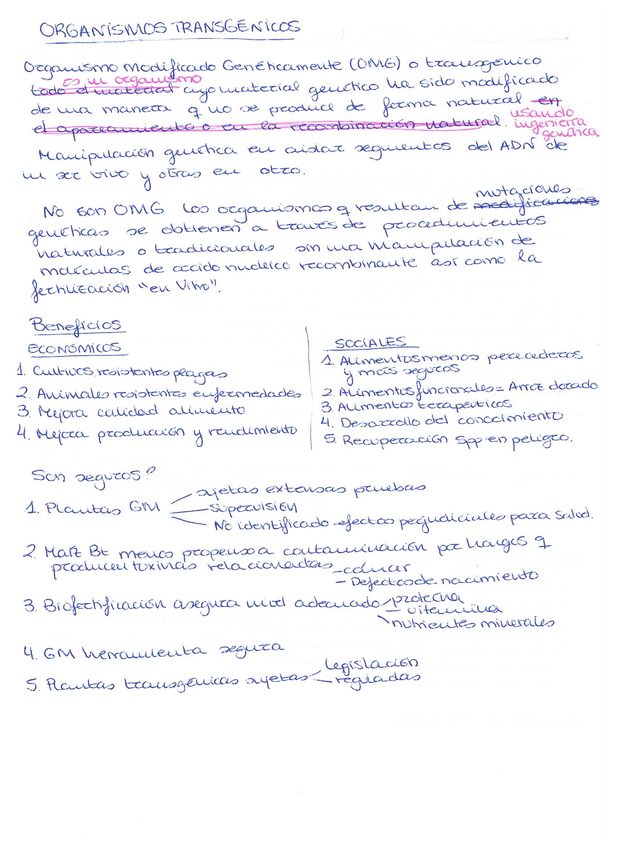 ORGANÍSMOS TRANSGÉNICOS
Organismo Modificado Genéticamente (OMG) o transgénico
es un organismo
todo el material cuyo material genético ha sido modificado
de una manera q no se produce de forma natural en
el apareamiento o en la recombinación natural. usando ingeniería genética
Manipulación genética en aislar segmentos del ADN de
un ser vivo y otras en otro.
No son OMG los organismos q resultan de modificaciones mutaciones
genéticas se obtienen a través de procedimientos
naturales o tradicionales sin una manipulación de
moléculas de accido nucleico recombinante así como la
fertilización "en Vitro".
Beneficios
ECONÓMICOS
1. Cultivos resistentes plagas
2. Animales resistentes enfermedades
3. Mejora calidad alimento
4. Mejora producción y rendimiento
SOCIALES
1. Alimentos menos perecederos
y más seguros
2. Alimentos funcionales = Arroz dorado
3. Alimentos terapéuticos
4. Desarrollo del conocimiento
5. Recuperación Spp en peligro.
Son seguros?
1. Plantas GM
sujetas extensas pruebas
Supervisión
No identificado efectos perjudiciales para Salud.
2. Maíz Bt menos propenso a contaminación por hongos q
producen toxinas relacionadas - cáncer
- Defectos de nacimiento
3. Biofortificación asegura nivel adecuado proteína
- vitamina
nutrientes minerales
4. GM herramienta segura
5. Plantas transgénicas sujetas legislación
reguladas